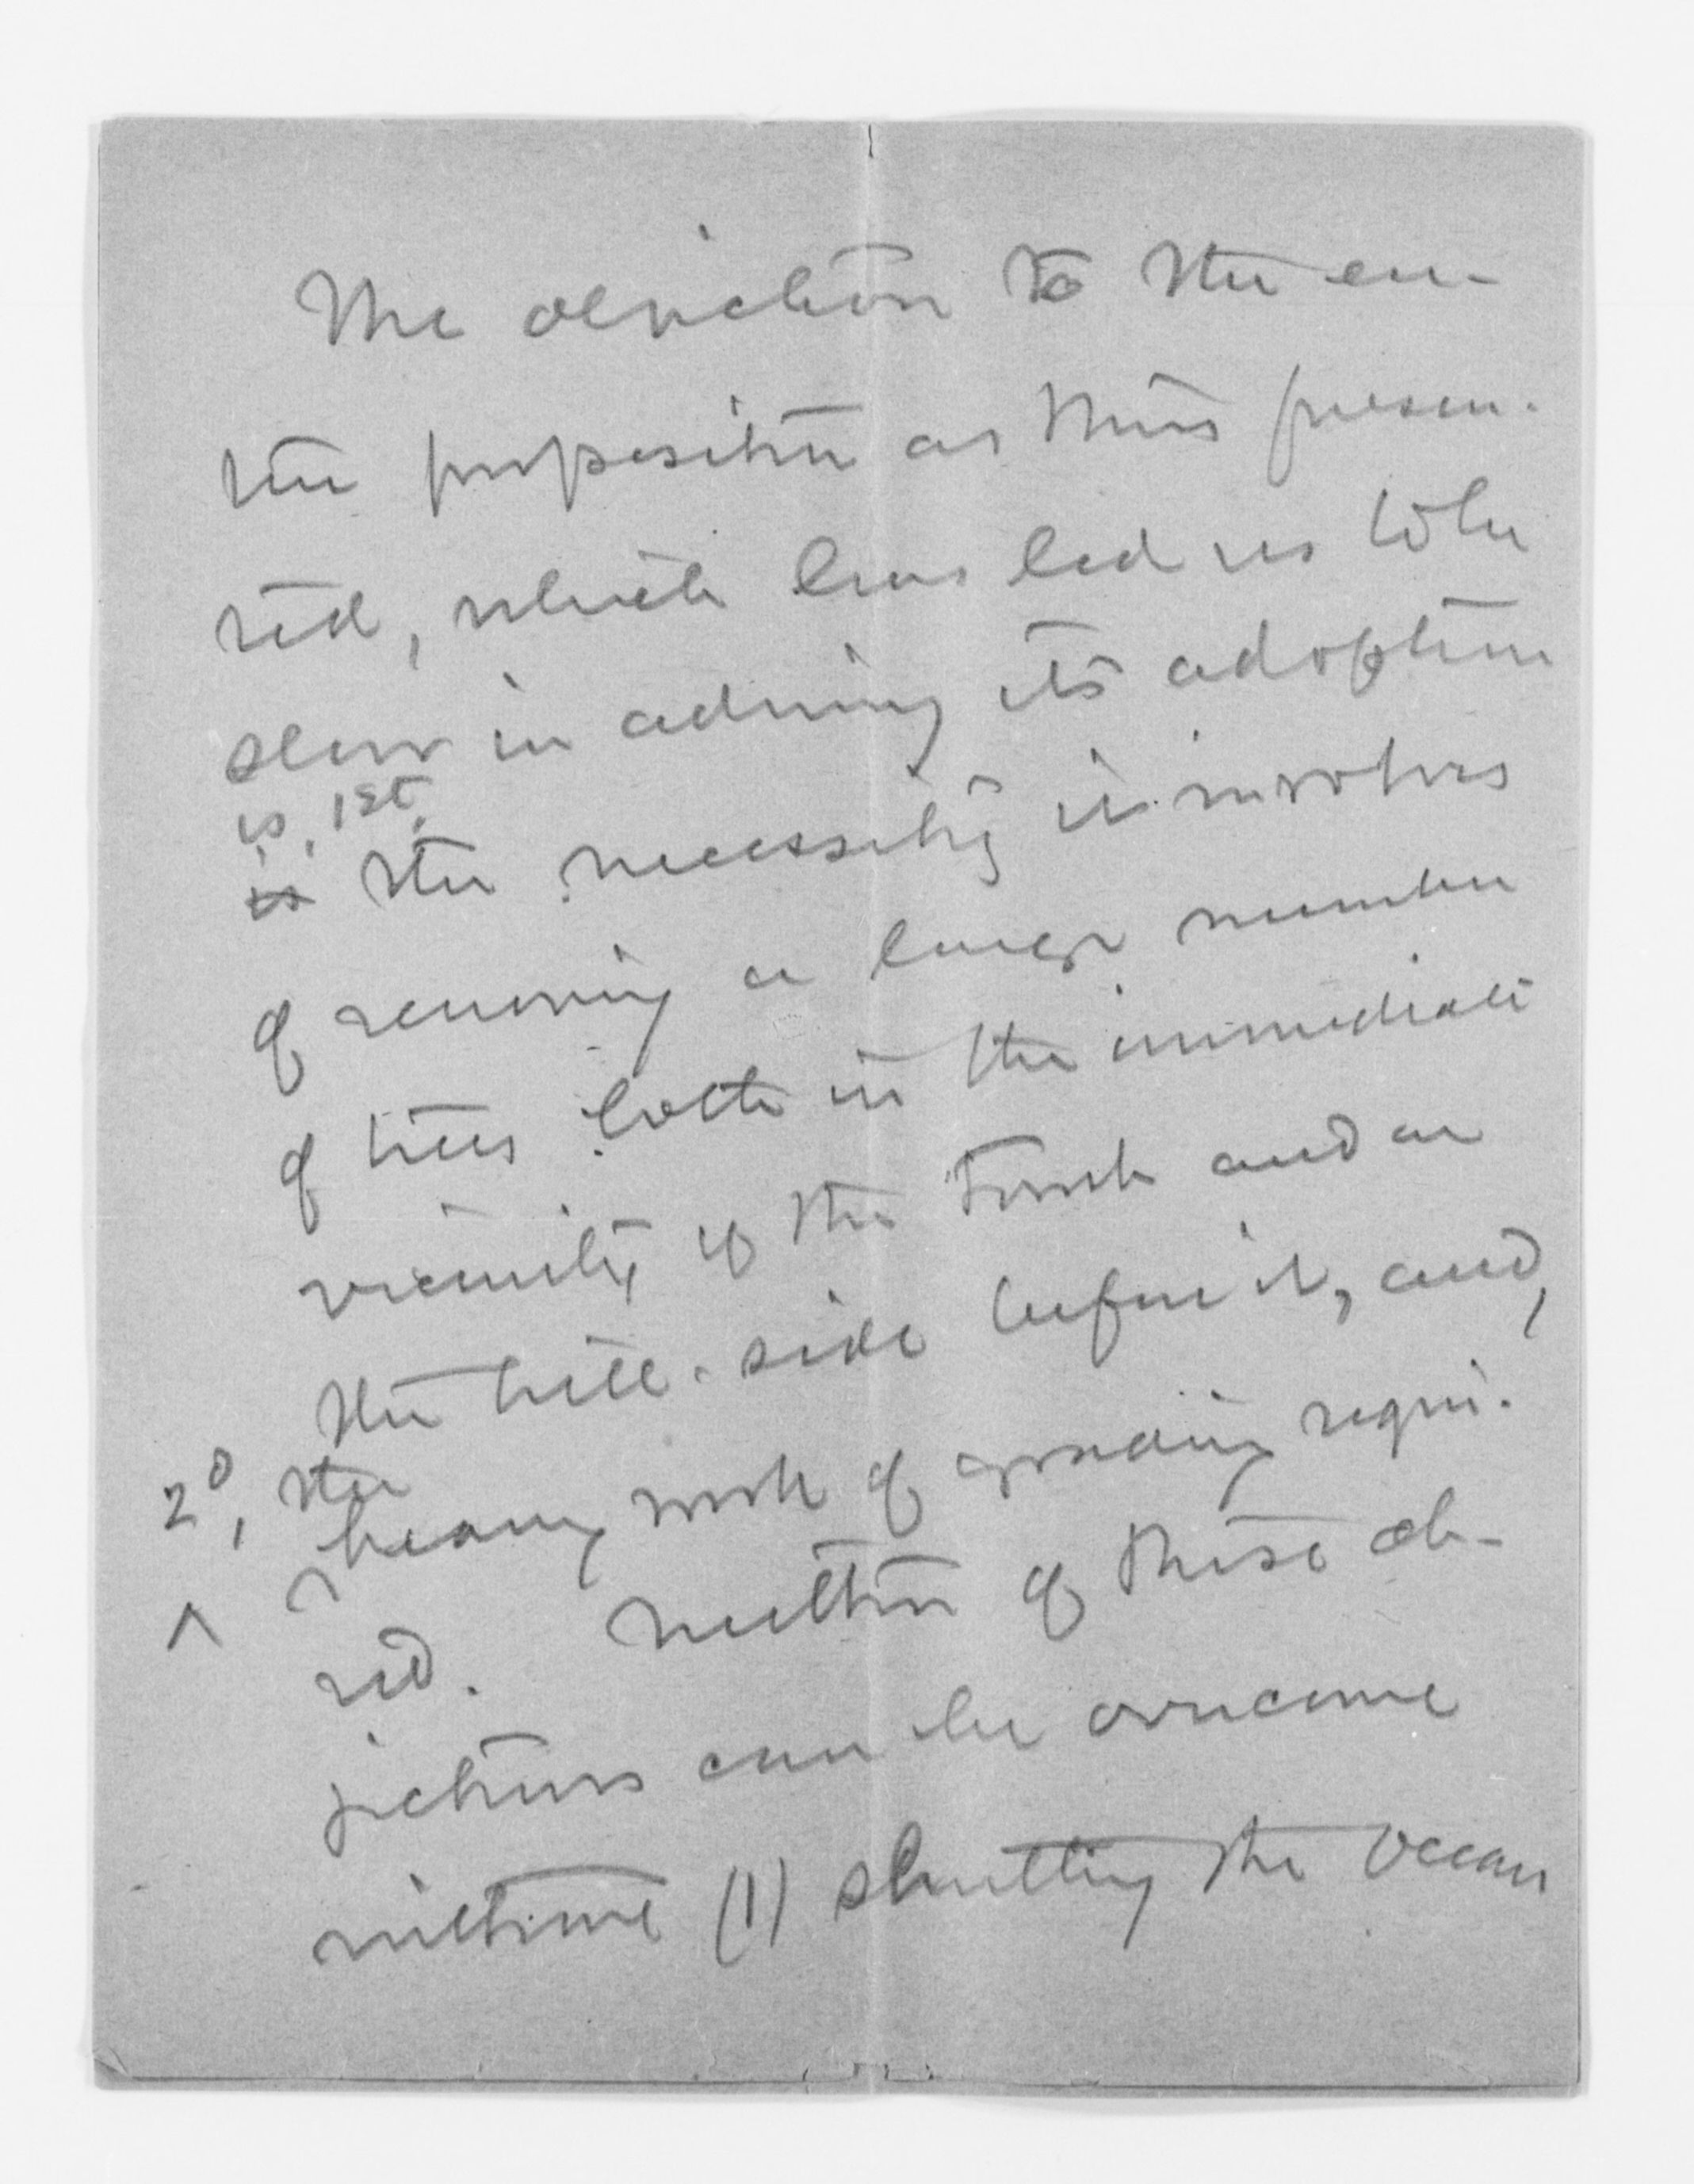 The objection to the en-
tire proposition as thus presen-
ted, which has led us to be
slow in advising its adoption
is, 1st,
is the necessity it involves
of removing a large number
of trees both in the immediate
vicinity of the Tomb and on
the hill-side before it, and,
2d, the
heavy work of grading requi-
red. Neither of these ob-
jections can be overcome
without (1) shutting the Ocean